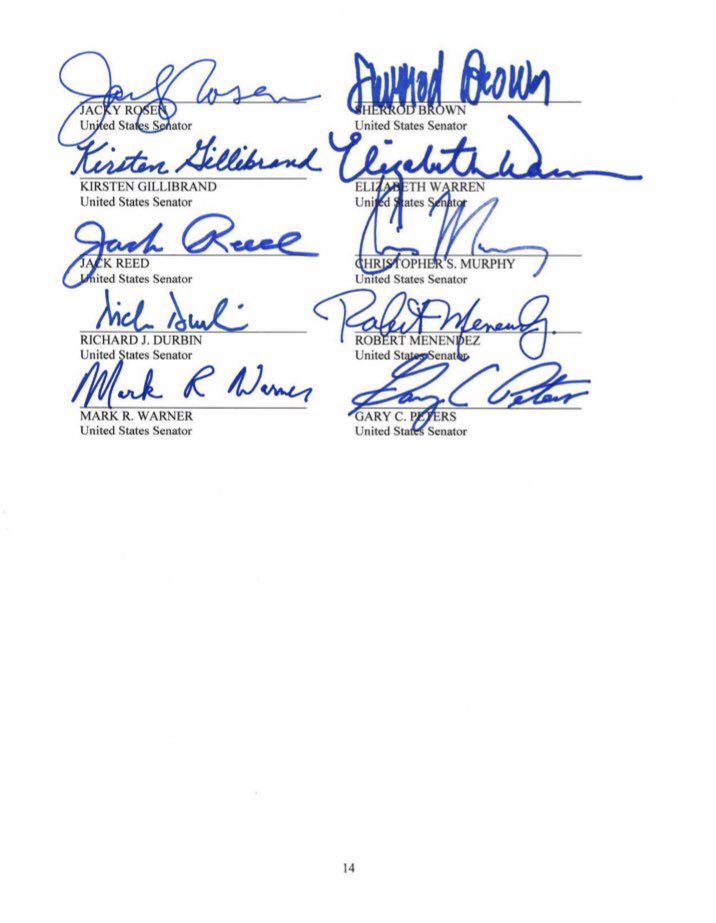 Jacky Rosen
JACKY ROSEN
United States Senator
Sherrod Brown
SHERROD BROWN
United States Senator
Kirsten Gillibrand
KIRSTEN GILLIBRAND
United States Senator
Elizabeth Warren
ELIZABETH WARREN
United States Senator
Jack Reed
JACK REED
United States Senator
Chris Murphy
CHRISTOPHER S. MURPHY
United States Senator
Dick Durbin
RICHARD J. DURBIN
United States Senator
Robert Menendez
ROBERT MENENDEZ
United States Senator
Mark R Warner
MARK R. WARNER
United States Senator
Gary C Peters
GARY C. PETERS
United States Senator
14